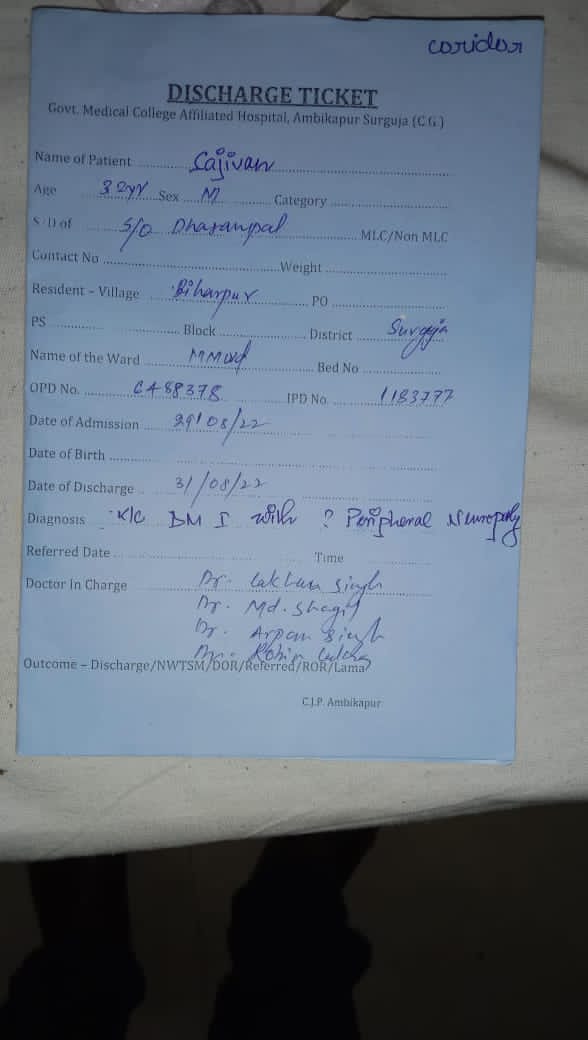 coridor
DISCHARGE TICKET
Govt. Medical College Affiliated Hospital, Ambikapur Surguja (C.G.)
Name of Patient Sajivan
Age 32yr Sex M Category
S/D of S/O Dharampal MLC/Non MLC
Contact No Weight
Resident – Village Biharpur PO
PS Block District Surguja
Name of the Ward Bed No
OPD No. IPD No. 1183777
Date of Admission 29/08/22
Date of Birth
Date of Discharge 31/08/22
Diagnosis K/C DM I with ? Peripheral Neuropathy
Referred Date Time
Doctor In Charge Dr. Lakhan Singh
Dr. Md.
Dr. Arpan Singh
Dr.
Outcome – Discharge/NWTSM/DOR/Referred/ROR/Lama
C.J.P. Ambikapur